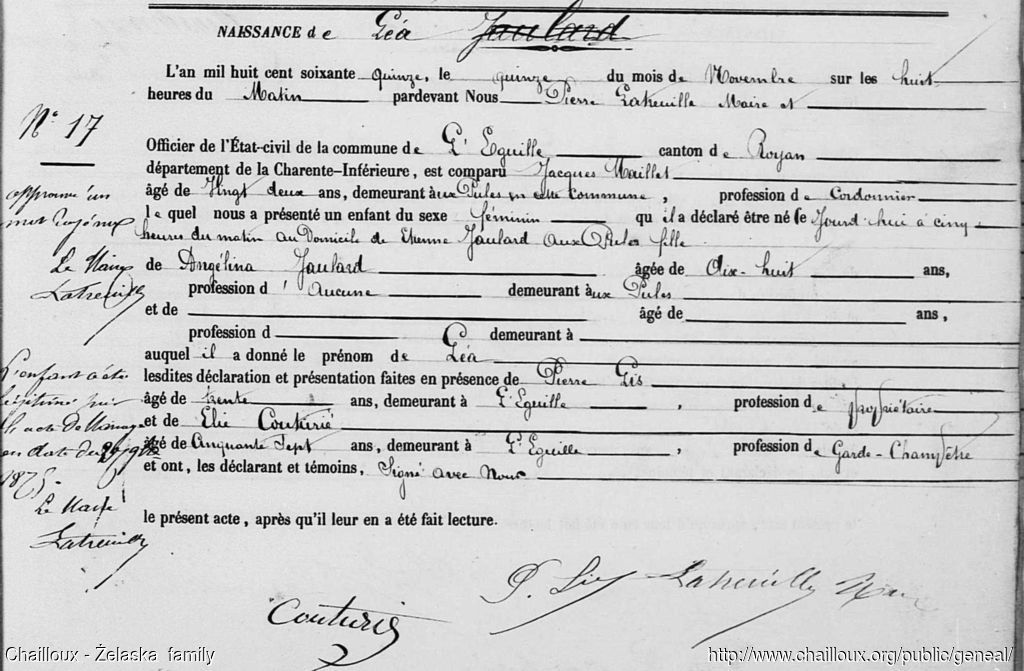 NAISSANCE de Léa Jaulard
L'an mil huit cent soixante quinze, le quinze du mois de Novembre sur les huit
heures du Matin pardevant Nous Pierre Latreuille Maire et
N° 17
Officier de l'État-civil de la commune de L'Eguille canton de Royan
département de la Charente-Inférieure, est comparu Jacques Maillet
âgé de Vingt deux ans, demeurant aux Pules en cette commune, profession de Cordonnier
le quel nous a présenté un enfant du sexe féminin qu'il a déclaré être né ce Jourd'hui à cinq
heures du matin au Domicile de Etienne Jaulard aux Pules fille
de Angélina Jaulard âgée de dix-huit ans,
profession d'Aucune demeurant aux Pules
et de âgé de ans,
profession d demeurant à
auquel il a donné le prénom de Léa
lesdites déclaration et présentation faites en présence de Pierre Lis
âgé de trente ans, demeurant à L'Eguille, profession de propriétaire
et de Elie Couturié
âgé de Cinquante Sept ans, demeurant à L'Eguille, profession de Garde-Champêtre
et ont, les déclarant et témoins, Signé avec Nous
le présent acte, après qu'il leur en a été fait lecture.
approuvé un
mot rayé nul
Le Maire
Latreuille
L'enfant a été
légitimé par
acte de Mariage
en date du
1875.
Le Maire
Latreuille
P. Lis Latreuille Maire
Couturié
Chailloux - Żelaska family http://www.chailloux.org/public/geneal/